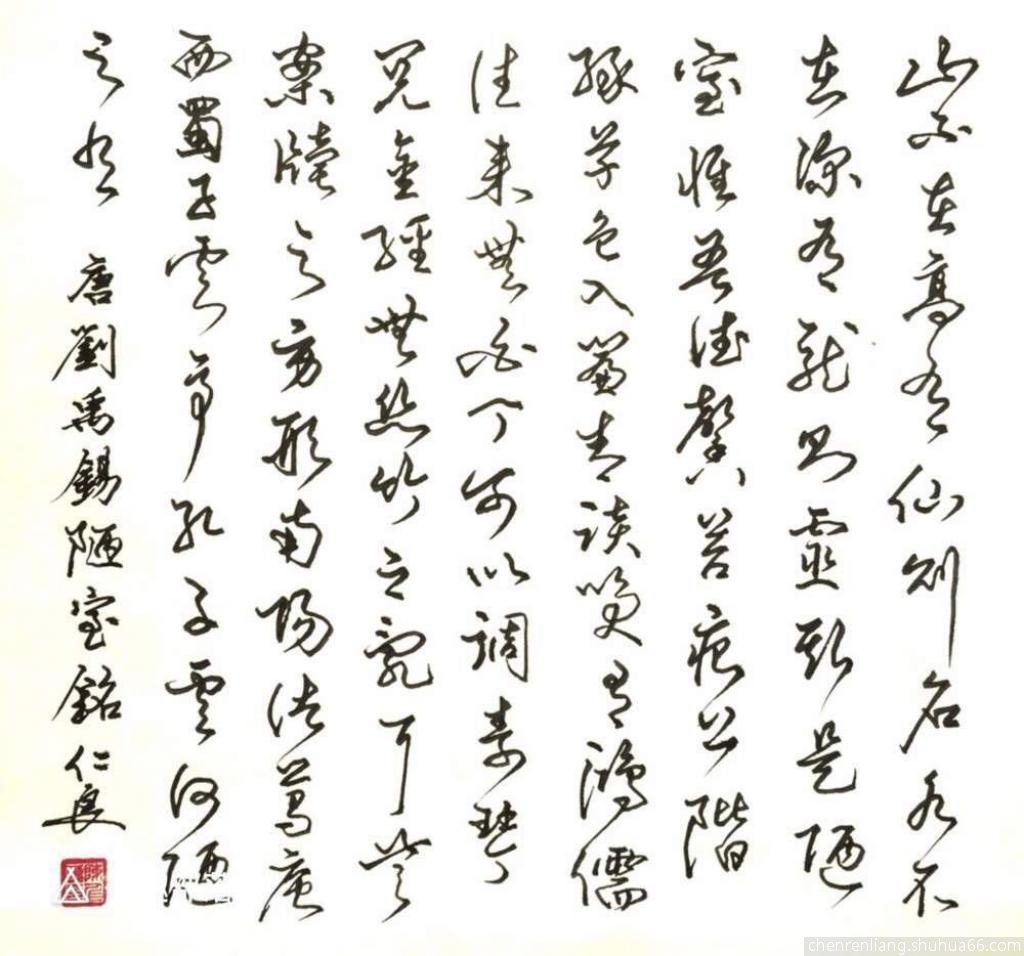 山不在高有仙則名水不
在深有龍則靈斯是陋
室惟吾德馨苔痕上階
綠草色入簾青談笑有鴻儒
往來無白丁可以調素琴
閱金經無絲竹之亂耳無
案牘之勞形南陽諸葛廬
西蜀子雲亭孔子雲何陋
之有 唐劉禹錫陋室銘仁良
chenrenliang.shuhua66.com